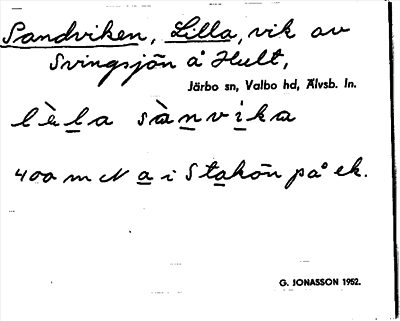 Sandviken, Lilla, vik av
Svingsjön å Hult,
Järbo sn, Valbo hd, Älvsb. ln.
lèla sànvika
400 m N a i Stakön på ek.
G. JONASSON 1952.